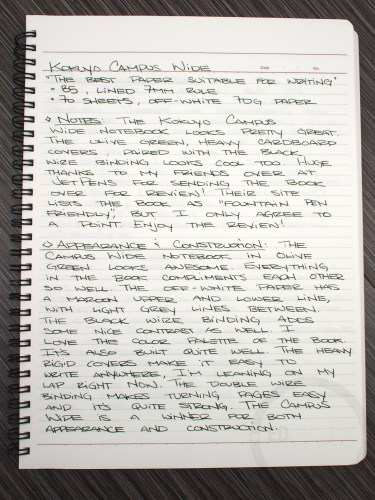 Kokuyo Campus Wide
Date No.
"The best paper suitable for writing"
• B5, lined 7mm rule
• 70 sheets, off-white 70g paper
◊ Notes: The Kokuyo Campus
Wide notebook looks pretty great.
The olive green, heavy cardboard
covers, paired with the black
wire binding looks cool too. Huge
thanks to my friends over at
JetPens for sending the book
over for review! Their site
lists the book as "fountain pen
friendly", but I only agree to
a point. Enjoy the review!
◊ Appearance & Construction: The
Campus Wide notebook in olive
green looks awesome. Everything
in the book compliments each other
so well. The off-white paper has
a maroon upper and lower line,
with light grey lines between.
The black wire binding adds
some nice contrast as well. I
love the color palette of the book.
It's also built quite well. The heavy
rigid covers make it easy to
write anywhere, I'm leaning on my
lap right now. The double wire
binding makes turning pages easy
and it's quite strong. The Campus
Wide is a winner for both
appearance and construction.